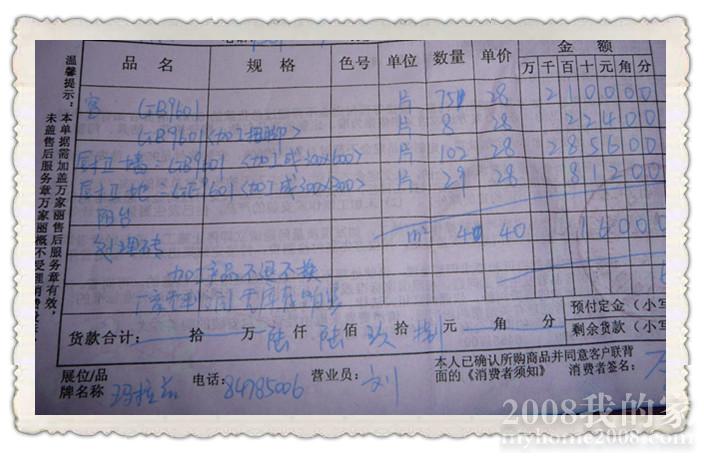 品 名 规 格 色号 单位 数量 单价 金 额
万 千 百 十 元 角 分
客 GB9601 片 75 28 2 1 0 0 0 0
GB9601<加工 踢脚> 片 8 28 2 2 4 0 0
厨卫墙:GB9601 <加工成300x600> 片 102 28 2 8 5 6 0 0
厨卫地:GF9601<加工成300x300> 片 29 28 8 1 2 0 0
阳台
处理砖 m² 4 40 1 6 0 0 0
加工产品不退不换
货款合计: 拾 万 陆 仟 陆 佰 玖 拾 捌 元 角 分
预付定金(小写
剩余货款(小写
展位/品牌名称 玛拉兹 电话:84785006 营业员:刘
本人已确认所购商品并同意客户联背
面的《消费者须知》 消费者签名:
温馨提示:本单据需加盖万家丽售后服务章有效,
未盖售后服务章万家丽概不受理消费
2008我的家
myhome2008.com